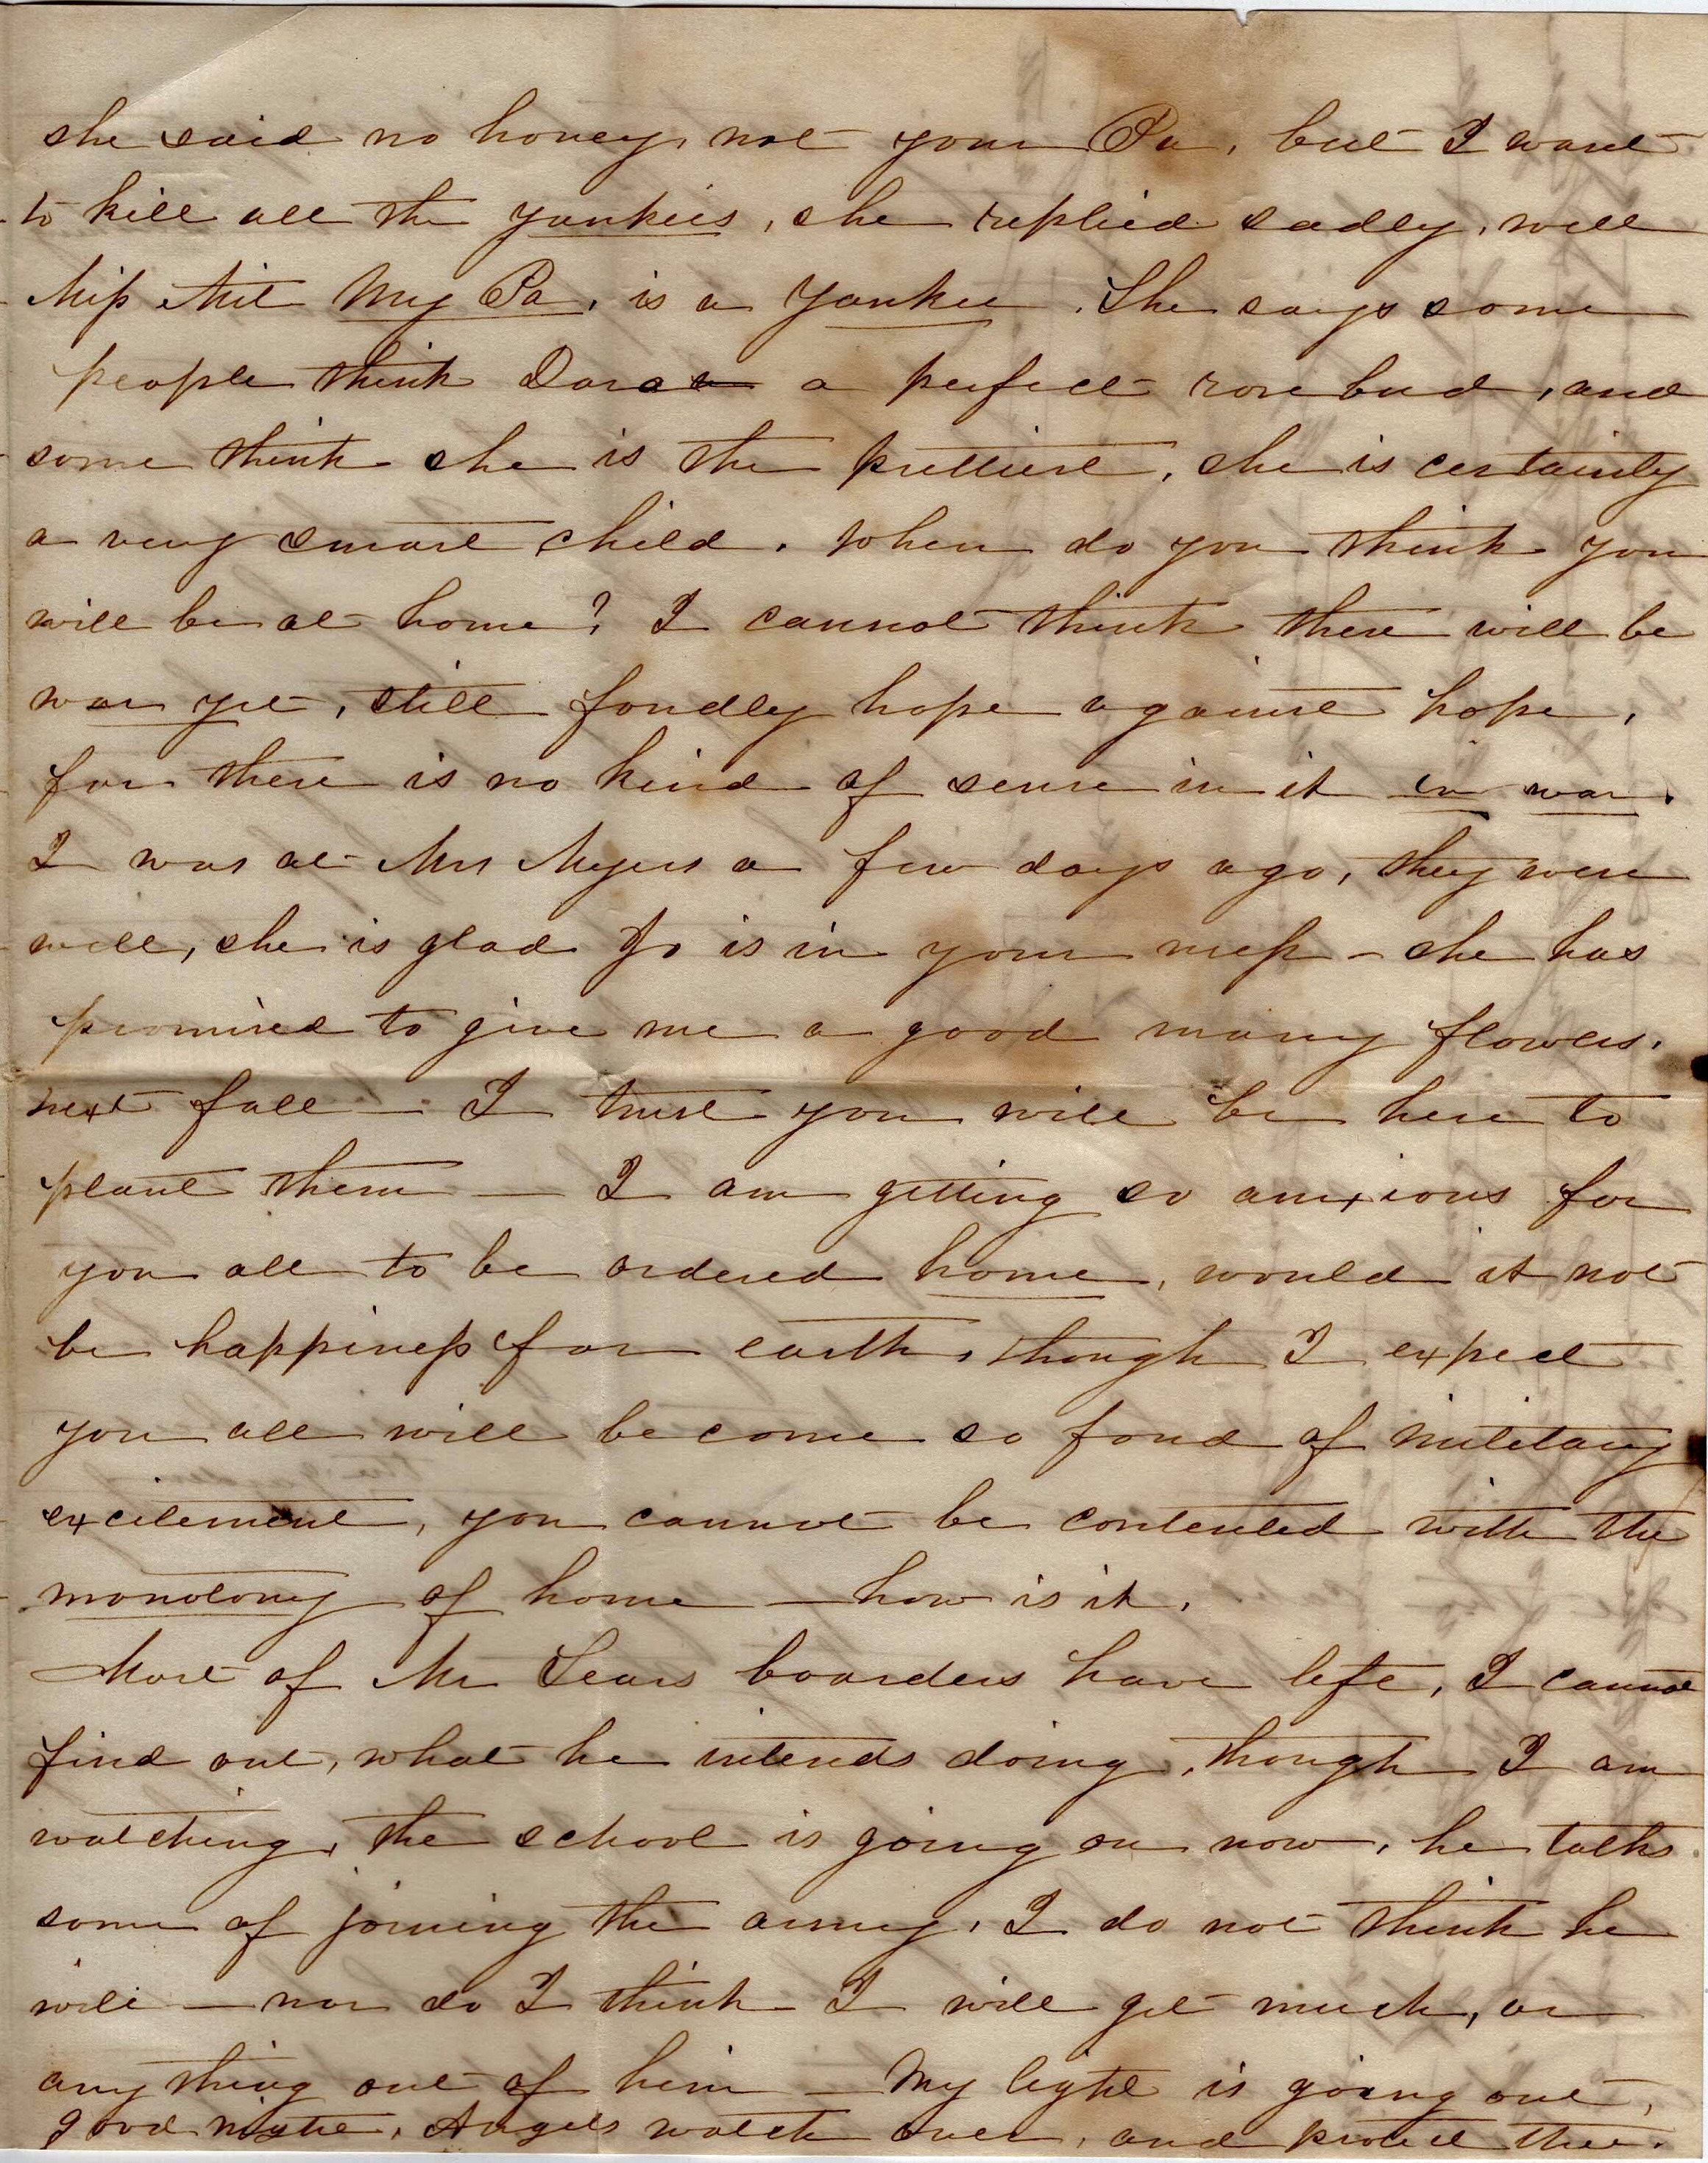 she said no honey, not your Pa, but I want
to kill all the yankees, she replied sadly, well
Miss Mit My Pa, is a Yankee. She says some
people think Dora a perfect rose bud, and
some think she is the prettiest, she is certainly
a very smart child. When do you think you
will be at home? I cannot think there will be
war yet, still fondly hope against hope,
for there is no kind of sense in it in war.
I was at Mrs Myers a few days ago, they were
well, she is glad Jo is in your mess - she has
promised to give me a good many flowers.
next fall - I trust you will be here to
plant them - I am getting so anxious for
you all to be ordered home, would it not
be happiness for earth, though I expect
you all will become so fond of military
excitement, you cannot be contented with the
monotony of home - how is it.
Most of Mr Sears boarders have left, I cannot
find out, what he intends doing, though I am
watching, the school is going on now, he talks
some of joining the army, I do not think he
will - nor do I think I will get much, or
any thing out of him - My light is going out,
good night, Angels watch over, and protect thee.